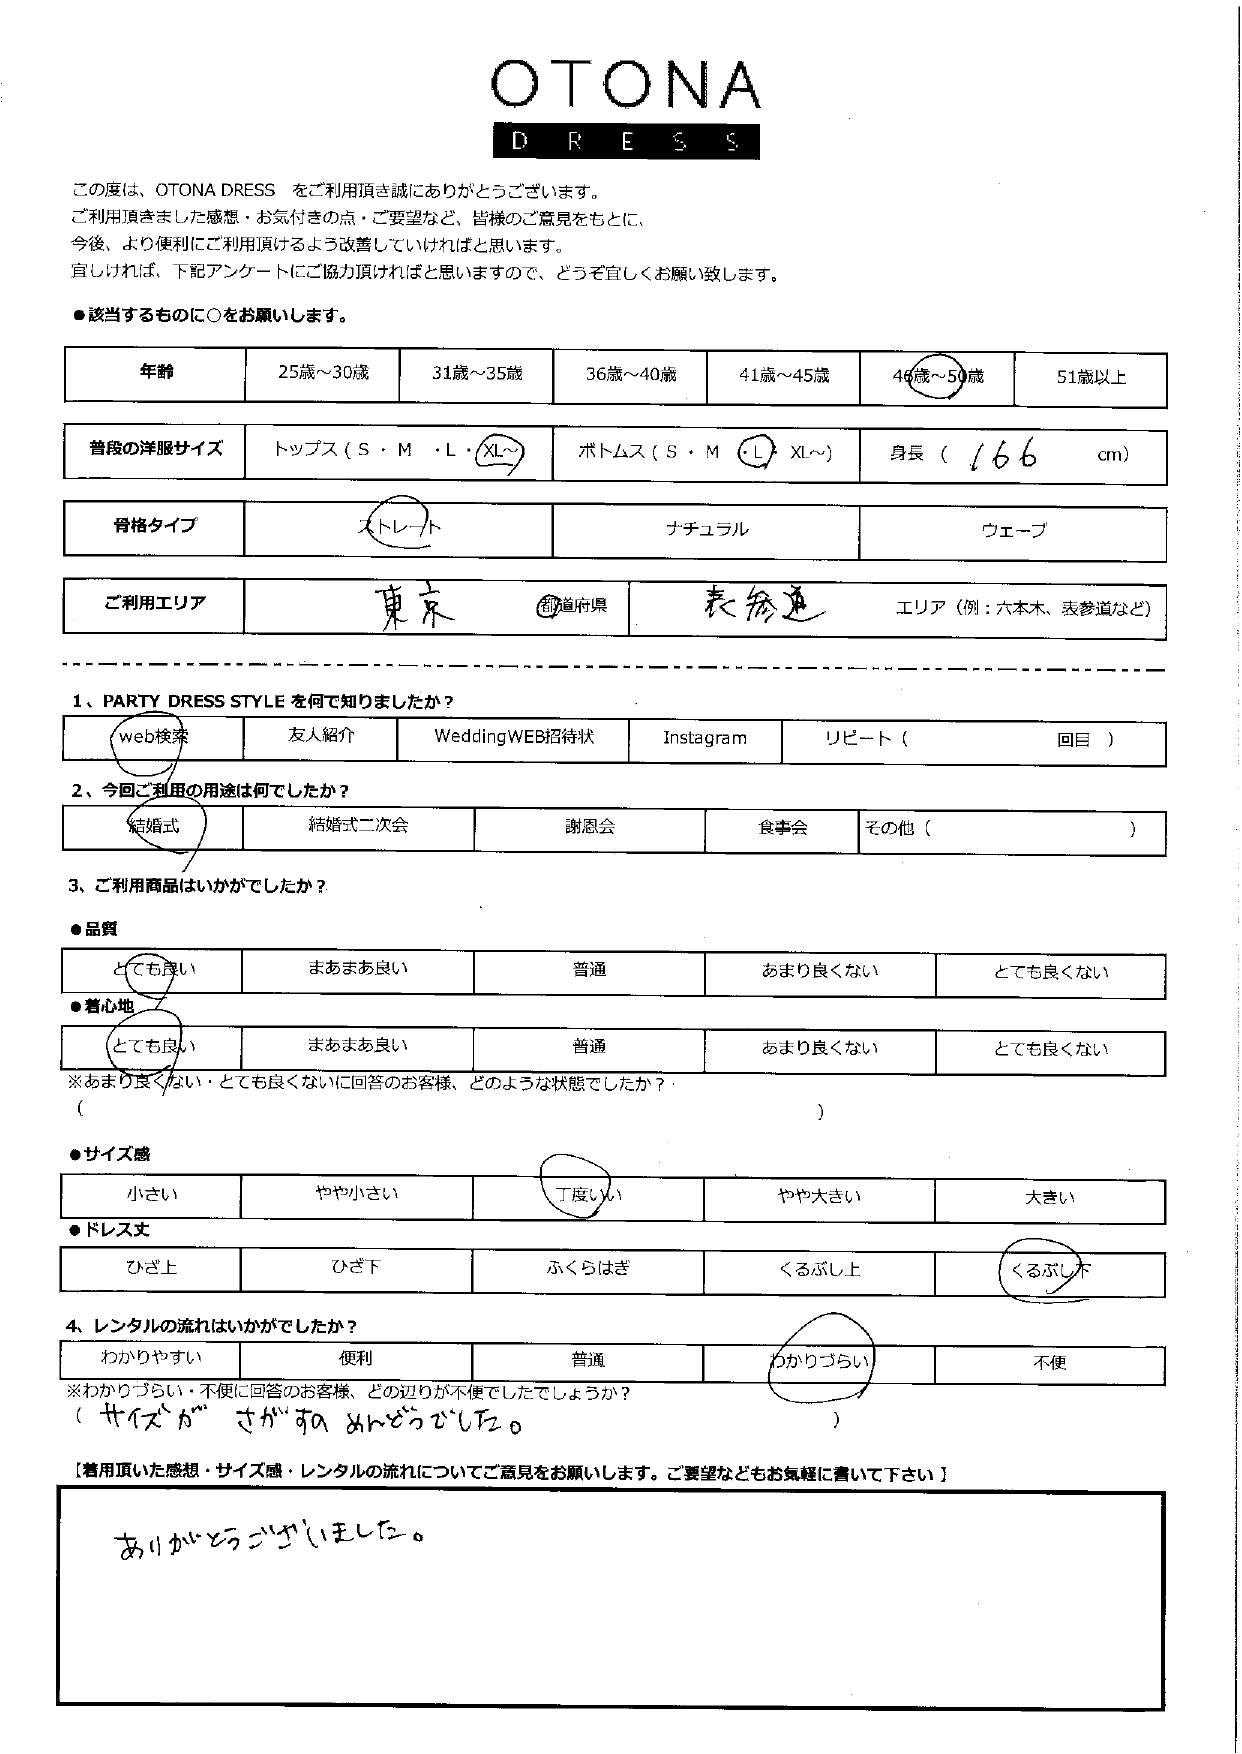 OTONA
DRESS
この度は、OTONA DRESS をご利用頂き誠にありがとうございます。
ご利用頂きました感想・お気付きの点・ご要望など、皆様のご意見をもとに、
今後、より便利にご利用頂けるよう改善していければと思います。
宜しければ、下記アンケートにご協力頂ければと思いますので、どうぞ宜しくお願い致します。
●該当するものに○をお願いします。
年齢 25歳～30歳 31歳～35歳 36歳～40歳 41歳～45歳 46歳～50歳 51歳以上
普段の洋服サイズ トップス ( S ・ M ・L ・ XL～) ボトムス ( S ・ M ・L・ XL～) 身長 ( 166 cm)
骨格タイプ ストレート ナチュラル ウェーブ
ご利用エリア 東京 都道府県 表参道 エリア (例：六本木、表参道など)
1、PARTY DRESS STYLE を何で知りましたか？
web検索 友人紹介 WeddingWEB招待状 Instagram リピート ( 回目 )
2、今回ご利用の用途は何でしたか？
結婚式 結婚式二次会 謝恩会 食事会 その他 ( )
3、ご利用商品はいかがでしたか？
●品質
とても良い まあまあ良い 普通 あまり良くない とても良くない
●着心地
とても良い まあまあ良い 普通 あまり良くない とても良くない
※あまり良くない・とても良くないに回答のお客様、どのような状態でしたか？
( )
●サイズ感
小さい やや小さい 丁度いい やや大きい 大きい
●ドレス丈
ひざ上 ひざ下 ふくらはぎ くるぶし上 くるぶし下
4、レンタルの流れはいかがでしたか？
わかりやすい 便利 普通 わかりづらい 不便
※わかりづらい・不便に回答のお客様、どの辺りが不便でしたでしょうか？
( サイズが さがすの めんどうでした。 )
【着用頂いた感想・サイズ感・レンタルの流れについてご意見をお願いします。ご要望などもお気軽に書いて下さい】
ありがとうございました。